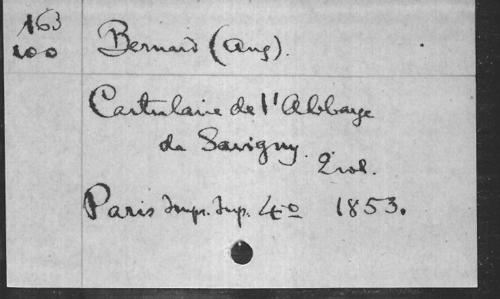 163
100
Bernard (Aug).
Cartulaire de l'Abbaye
de Savigny.
2 vol.
Paris Impr. Imp. 4º 1853.